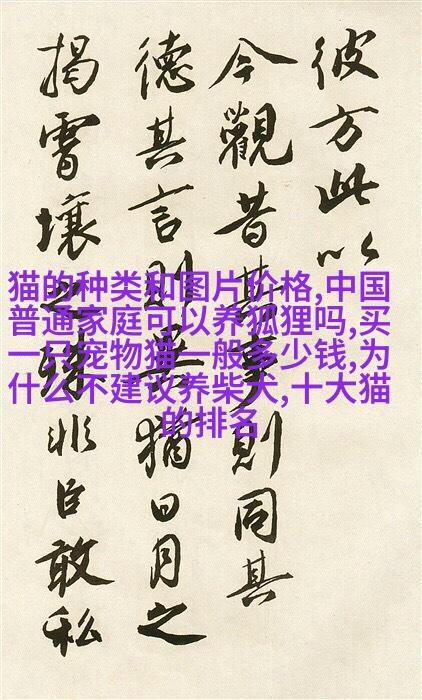 彼方此以
今觀昔事則同其
德其言則猶日月之
揭霄壤之非臣敢私
猫的种类和图片价格,中国
普通家庭可以养狐狸吗,买
一只宠物猫一般多少钱,为
什么不建议养柴犬,十大猫
的排名